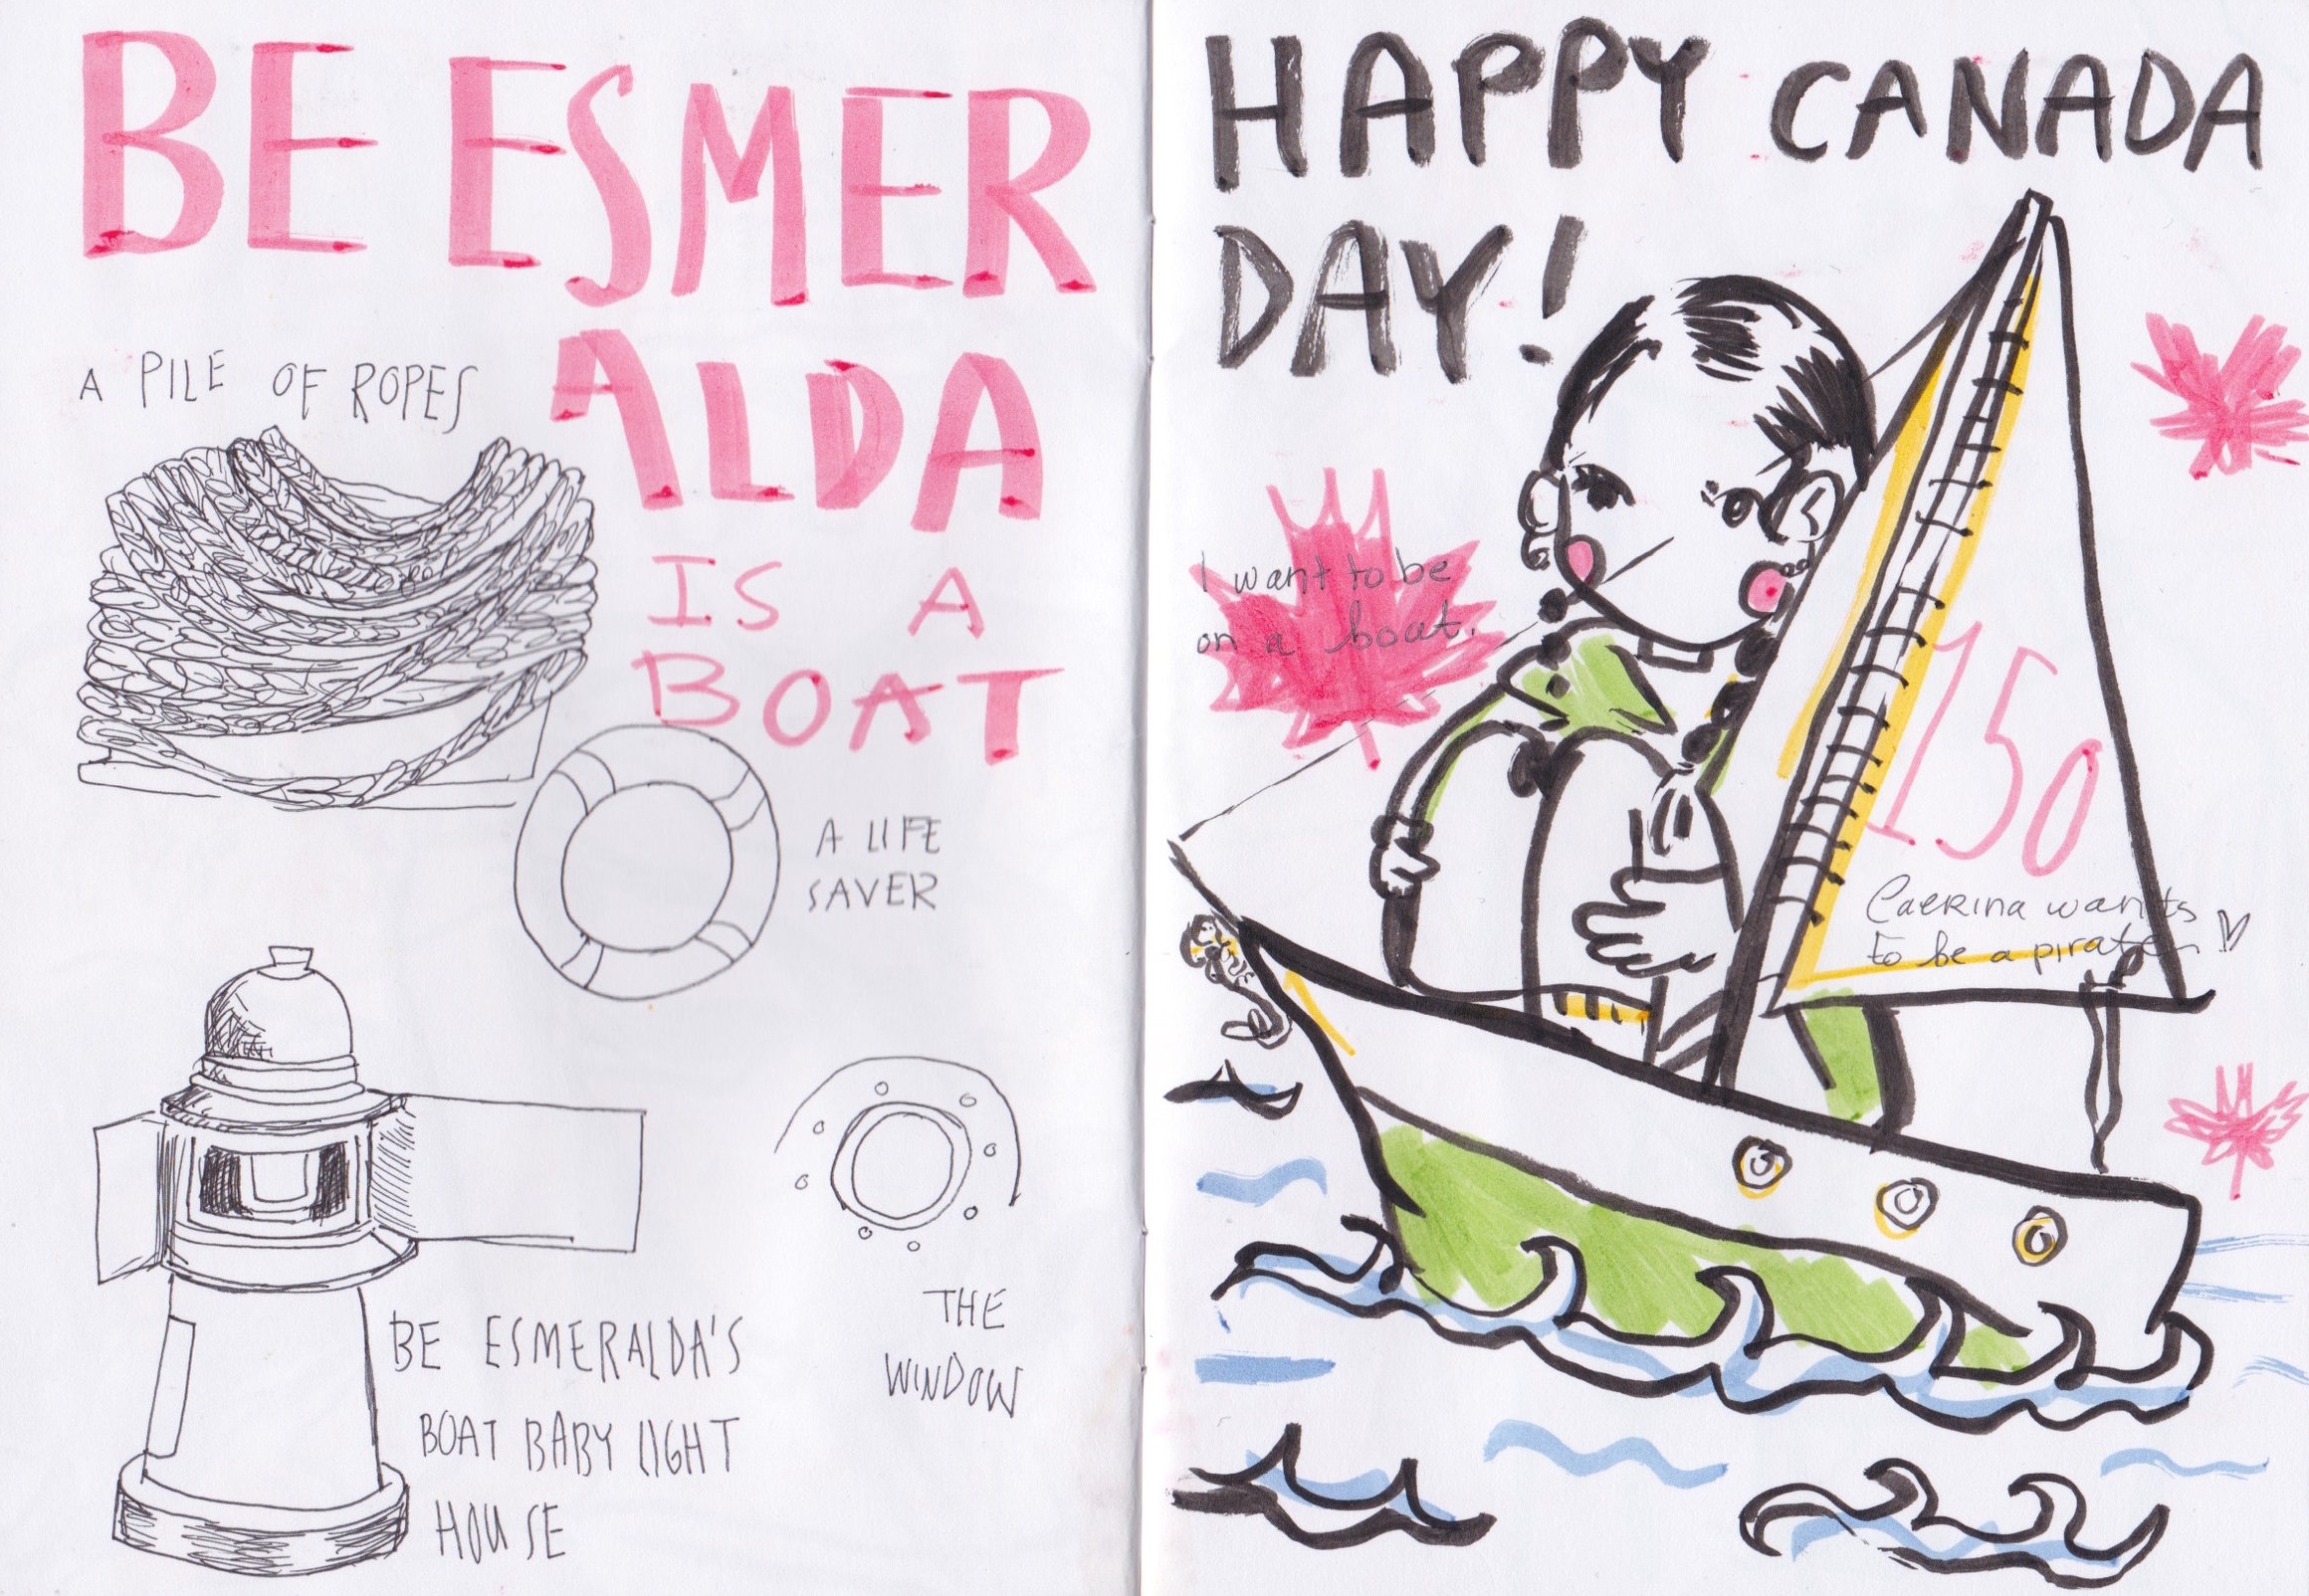 BE ESMER
ALDA
IS A
BOAT
A PILE OF ROPES
A LIFE
SAVER
BE ESMERALDA'S
BOAT BABY LIGHT
HOUSE
THE
WINDOW
HAPPY CANADA
DAY!
I want to be
on a boat.
150
CaERINa wants
to be a pirate